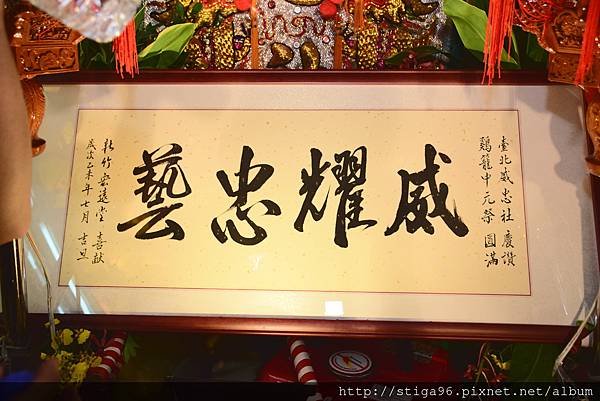 臺北威忠社 慶讚
鷄籠中元祭 圓滿
威耀忠藝
新竹宏遠堂 喜献
歲次乙未年七月 吉旦
http://stiga96.pixnet.net/album